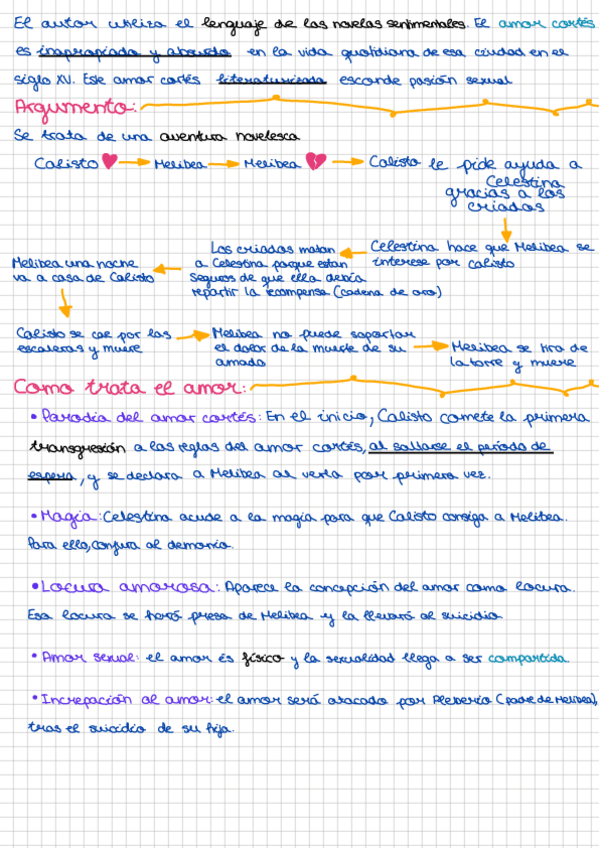 El autor utiliza el lenguaje de las novelas sentimentales. El amor cortés
es inapropiado y absurdo en la vida quotidiana de esa ciudad en el
siglo XV. Este amor cortés literaturizado esconde pasión sexual
Argumento:
Se trata de una aventura novelesca
Calisto → Melibea → Melibea → Calisto le pide ayuda a
Celestina
gracias a los
criados
Celestina hace que Melibea se
interese por Calisto
Los criados matan
a Celestina porque estan
seguros de que ella debía
repartir la recompensa (cadena de oro)
Melibea una noche
va a casa de Calisto
Calisto se cae por las
escaleras y muere
Melibea no puede soportar
el dolor de la muerte de su
amado
Melibea se tira de
la torre y muere
Como trata el amor:
• Parodia del amor cortés: En el inicio, Calisto comete la primera
transgresión a las reglas del amor cortés, al saltarse el periodo de
espera, y se declara a Melibea al verla por primera vez.
• Magia: Celestina acude a la magia para que Calisto consiga a Melibea.
Para ello, conjura al demonio.
• Locura amorosa: Aparece la concepción del amor como locura.
Esa locura se hará presa de Melibea y la llevará al suicidio
• Amor sexual: el amor és físico y la sexualidad llega a ser compartida.
• Increpación al amor: el amor será atacado por Pleberio (padre de Melibea),
tras el suicidio de su hija.